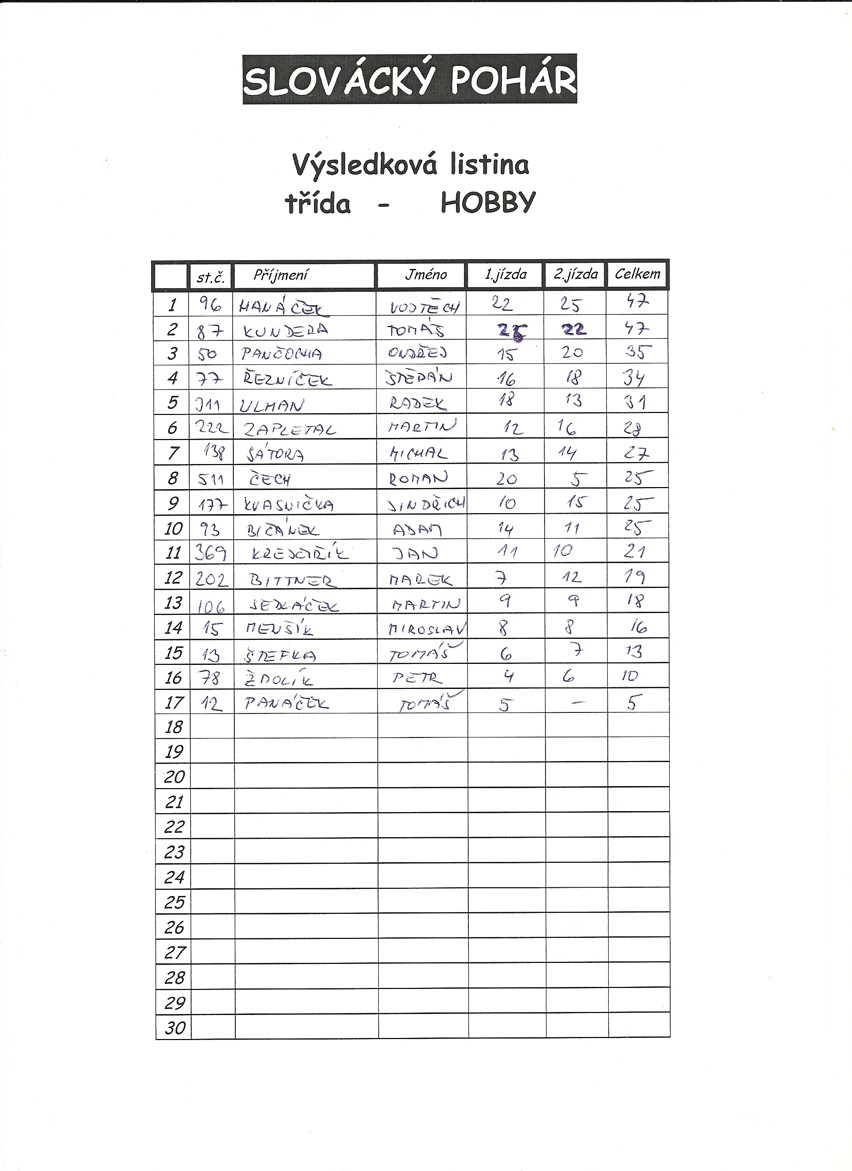 SLOVÁCKÝ POHÁR
Výsledková listina
třída - HOBBY
st.č. Příjmení Jméno 1.jízda 2.jízda Celkem
1 96 HANÁČEK VOJTĚCH 22 25 47
2 87 KUNDERA TOMÁŠ 25 22 47
3 50 PANČOCHA ONDŘEJ 15 20 35
4 77 ŘEZNÍČEK ŠTĚPÁN 16 18 34
5 311 ULMAN RADEK 18 13 31
6 222 ZAPLETAL MARTIN 12 16 28
7 138 SÁTORA MICHAL 13 14 27
8 511 ČECH ROMAN 20 5 25
9 177 KVASNIČKA JINDŘICH 10 15 25
10 93 BIČÁNEK ADAM 14 11 25
11 369 KREJČIŘÍK JAN 11 10 21
12 202 BITTNER MAREK 7 12 19
13 106 SEDLÁČEK MARTIN 9 9 18
14 15 MENŠÍK MIROSLAV 8 8 16
15 13 ŠTEFKA TOMÁŠ 6 7 13
16 78 PETR 4 6 10
17 12 PANÁČEK TOMÁŠ 5 – 5
18
19
20
21
22
23
24
25
26
27
28
29
30